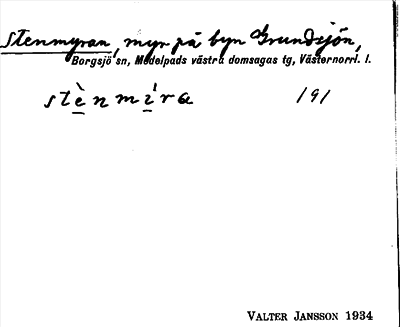 Stenmyran, myr på byn Grundsjön,
Borgsjö sn, Medelpads västra domsagas tg, Västernorrl. l.
stè̱nmí̱ra 191
VALTER JANSSON 1934